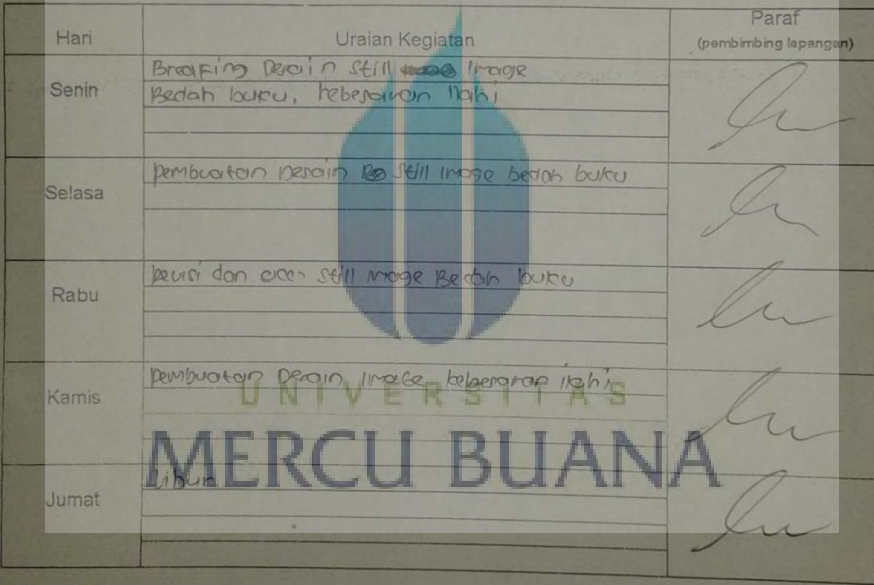 Hari Uraian Kegiatan Paraf
(pembimbing lapangan)
Senin
Breafing Desain Still Image
Bedah buku, kebesaran Ilahi
Selasa
pembuatan Desain Still Image bedah buku
Rabu
Revisi dan acc Still Image Bedah buku
Kamis
pembuatan Desain Image kebesaran ilahi
UNIVERSITAS
MERCU BUANA
Jumat
Libur